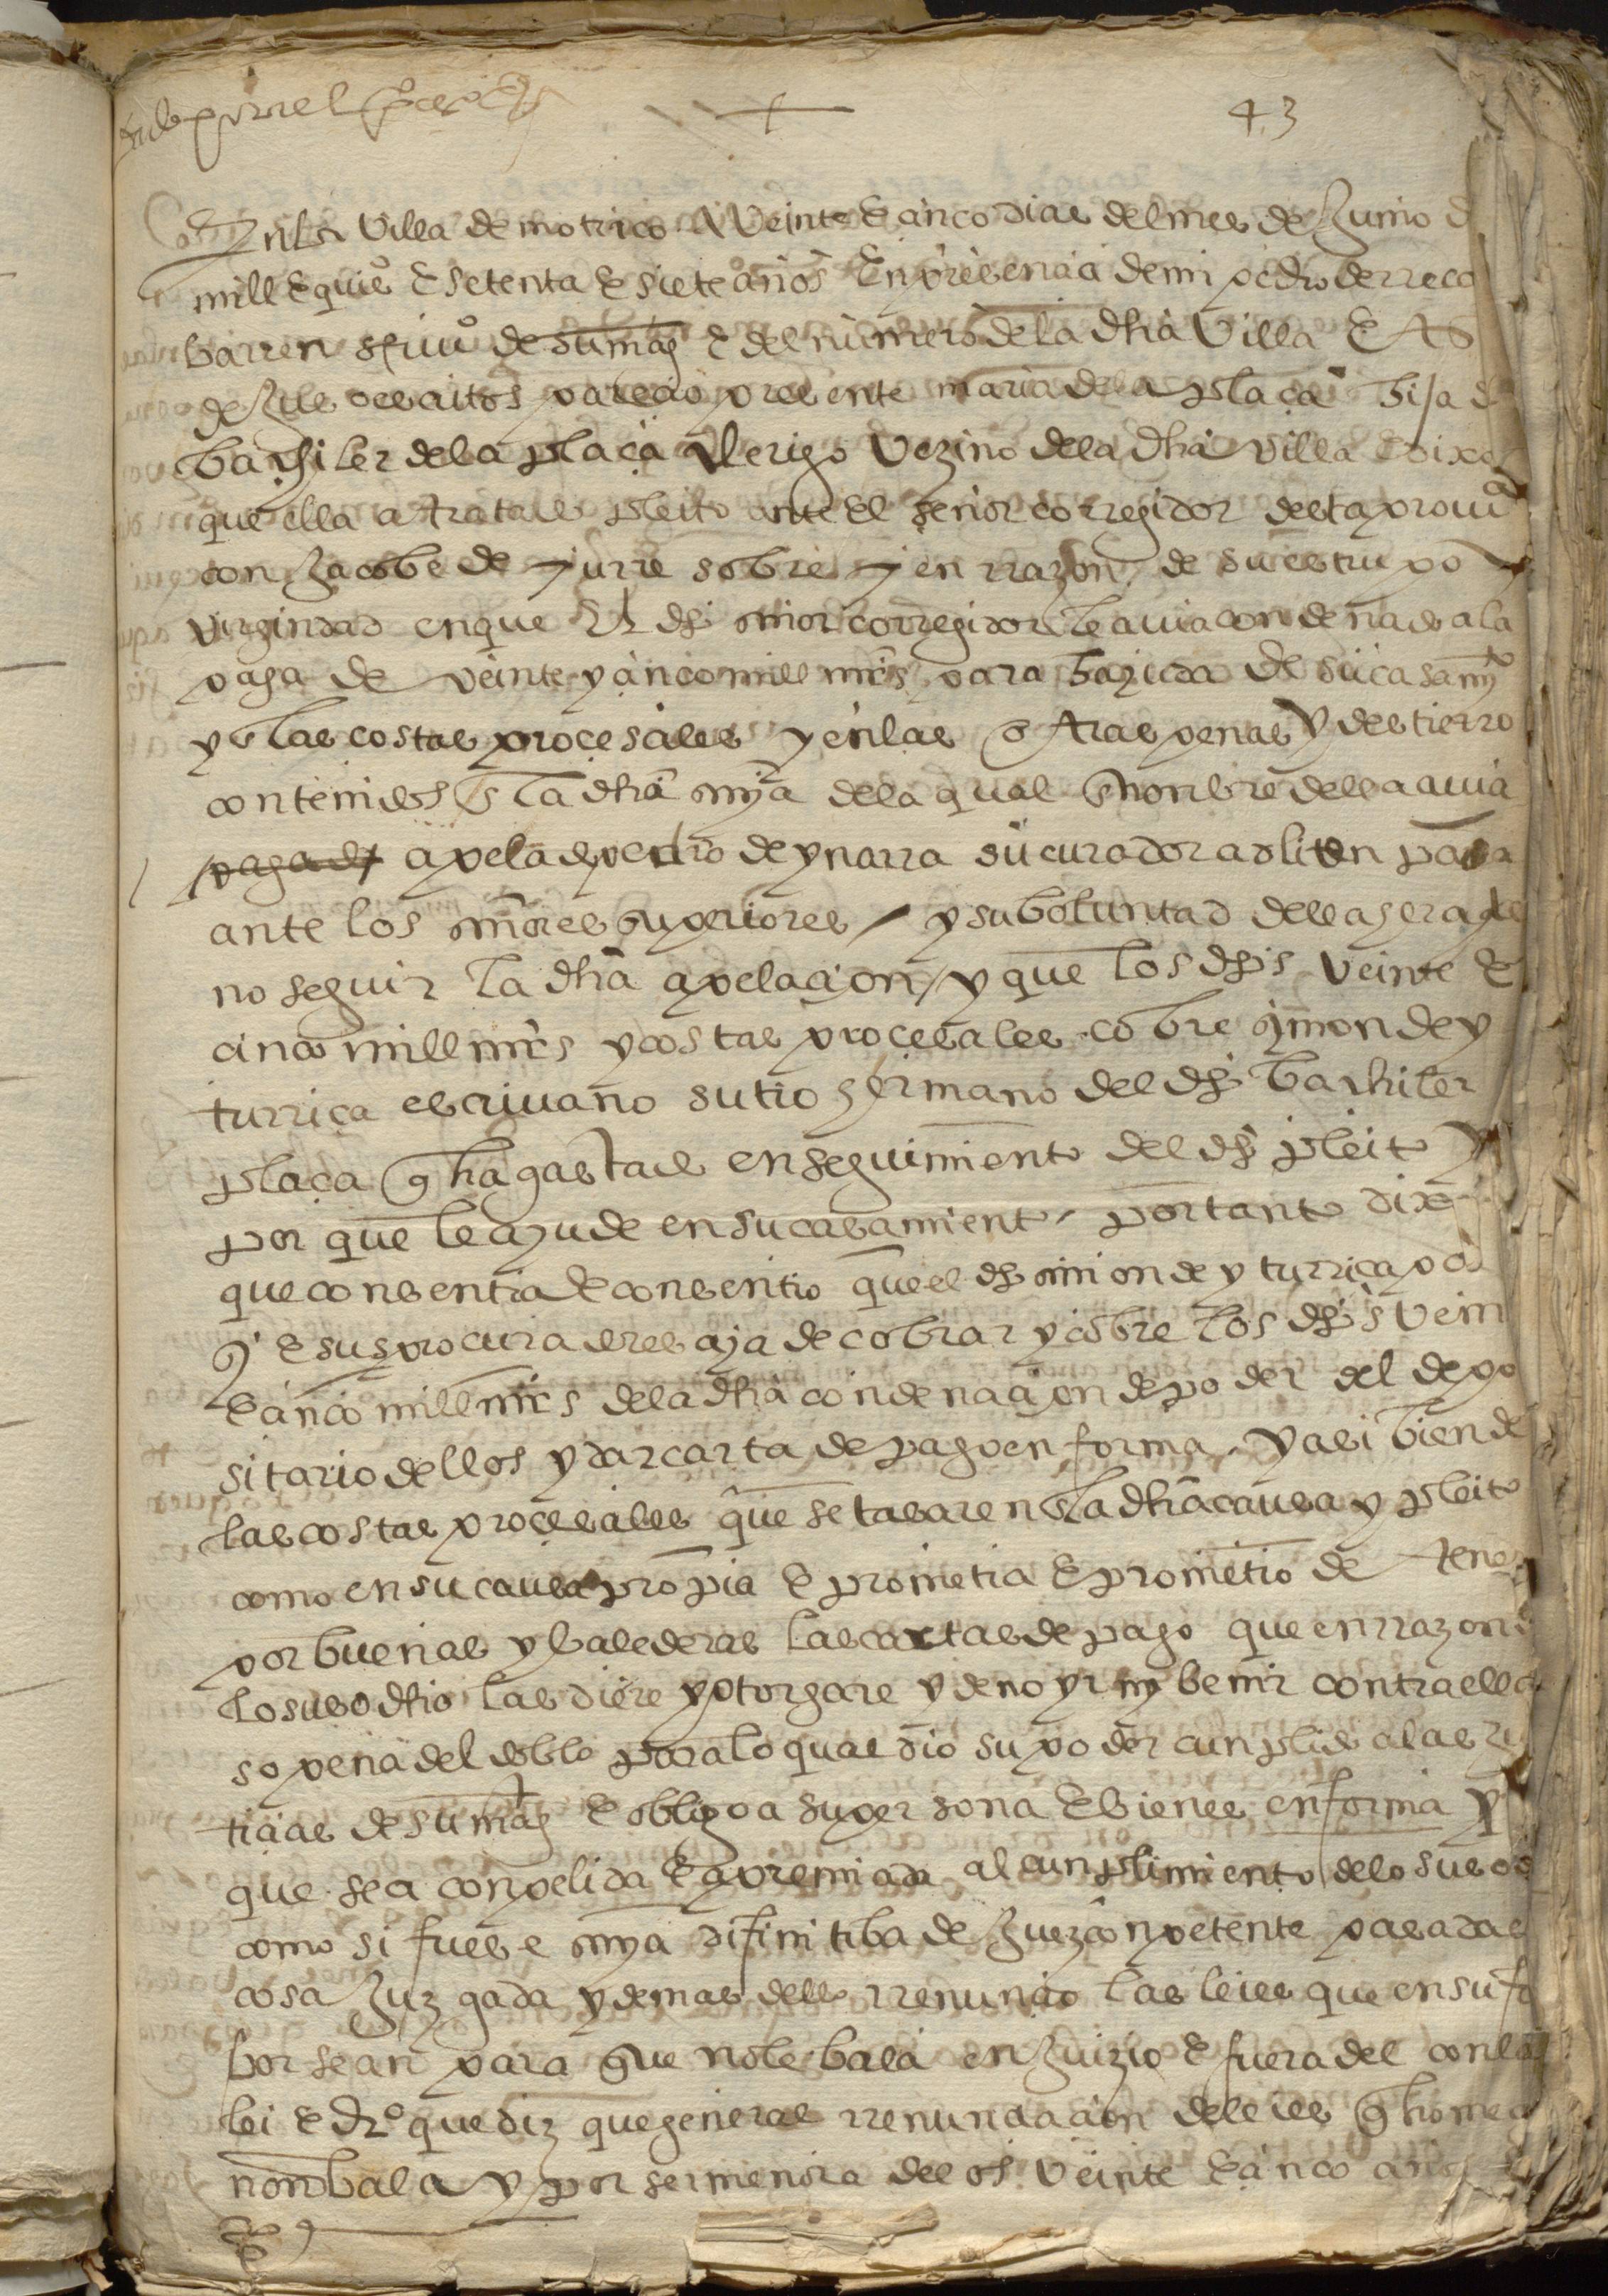 43
En la Villa de motrico A Veinte E cinco dias del mes de Junio d
mill E quis E setenta E siete años En presencia de mi pedro de rreca
barren scriuo de su mag E del numero de la dha Villa E
parecio presente maria de la plaça hija d
bachiler de la plaça clerigo Vezino de la dha Villa E dixo
que ella a tratado pleito ante El señor corregidor desta prouia
con Jacobe de yurre sobre y en rrazon de su estrupo y
virginidad en que El dho señor corregidor le auia condenado a la
paga de veinte y cinco mill mrs para hayuda de su casamyo
y las costas procesales y en las otras penas y destierro
contenidos en la dha snya de la qual en nonbre della auia
apelado pedro de ynarra su curador ad liten para
ante los señores superiores / y su boluntad della hera de
no seguir la dha apelacion / y que los dhos Veinte E
cinco mill mrs y costas procesales cobre simon de y
turriça escriuano su tio hermano del dho bachiler
plaça q ha gastado en seguimiento del dho pleito y
por que le ayude en su casamiento / por tanto dixo
que consentia E consentio que el dho simon de yturriça por
si E sus procuradores aja de cobrar y cobre los dhos Vein
E cinco mill mrs de la dha condenacion de poder del depo
sitario dellos y dar carta de pago en forma / y asi bien de
las costas procesales que se tasaren en la dha causa y pleito
como en su causa propia E prometia E prometio de tener
por buenas y balederas las cartas de pago que en rrazon d
lo suso dho las diere y otorgare y de no yr ny benir contra ello
so pena del doblo para lo qual dio su poder cunplido a las jus
ticias de su mag E obligo a su persona E bienes en forma y
que sea conpelida E apremiada al cunplimiento de lo suso d
como si fuese snya difinitiba de Juez conpetente pasada e
cosa Juzgada y demas dello rrenuncio las leies que en su fa
bor sean para que no le bala en Juizio E fuera del con la
lei E dro que diz que general rrenunciacion de leies q home
non bala y por ser menora de los veinte E cinco años